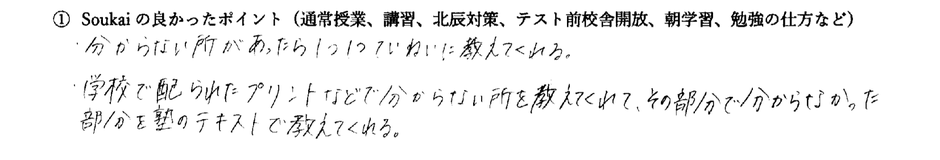 ① Soukai の良かったポイント（通常授業、講習、北辰対策、テスト前校舎開放、朝学習、勉強の仕方など）
・分からない所があったら1つ1つていねいに教えてくれる。
・学校で配られたプリントなどで分からない所を教えてくれて、その部分で分からなかった
部分を塾のテキストで教えてくれる。